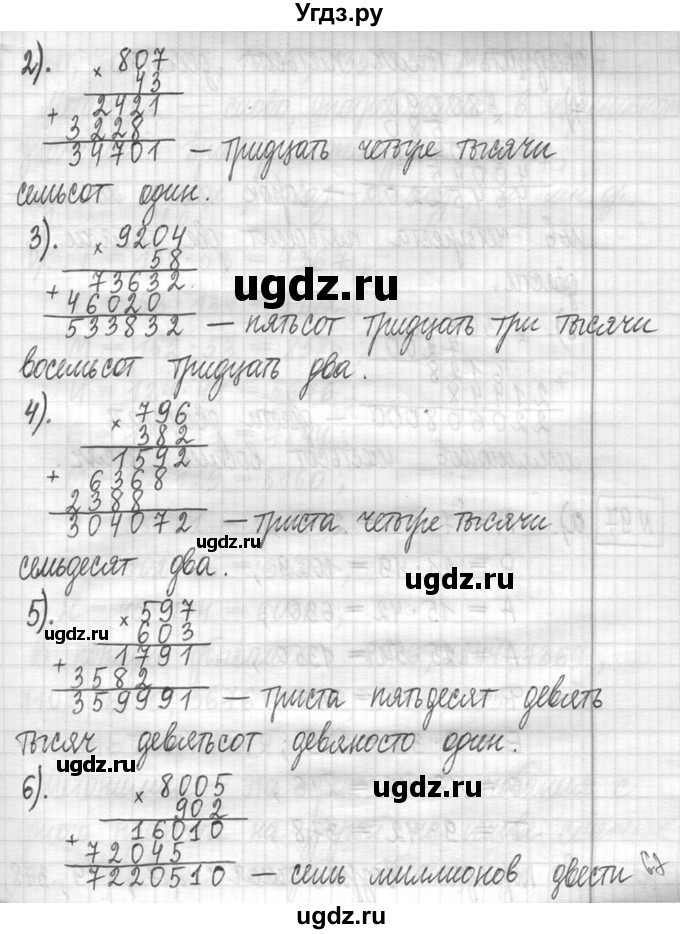 Угдз.ру
2). × 807
43
+ 2421
3228
34701 — тридцать четыре тысячи
семьсот один.
3). × 9204
58
+ 73632
46020
533832 — пятьсот тридцать три тысячи
восемьсот тридцать два.
4). × 796
382
+ 1592
6368
2388
304072 — триста четыре тысячи
семьдесят два.
5). × 597
603
+ 1791
3582
359991 — триста пятьдесят девять
тысяч девятьсот девяносто один.
6). × 8005
902
+ 16010
72045
7220510 — семь миллионов двести
ugdz.ru
ugdz.ru
ugdz.ru
ugdz.ru
ugdz.ru
ugdz.ru
ugdz.ru
ugdz.ru
ugdz.ru